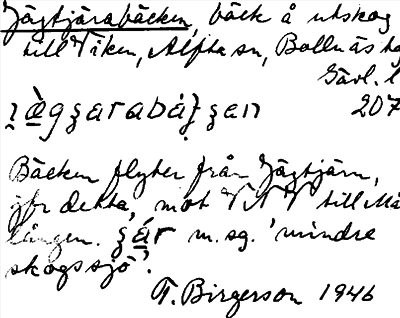 Jägtjärabäcken, bäck å utskog
till Viken, Alfta sn, Bollnäs
Gävl. l
207
Bäcken flyter från Jägtjärn,
jfr detta, mot VNV till Må
lången. m. sg. 'mindre
skogssjö'.
T. Birgerson 1946